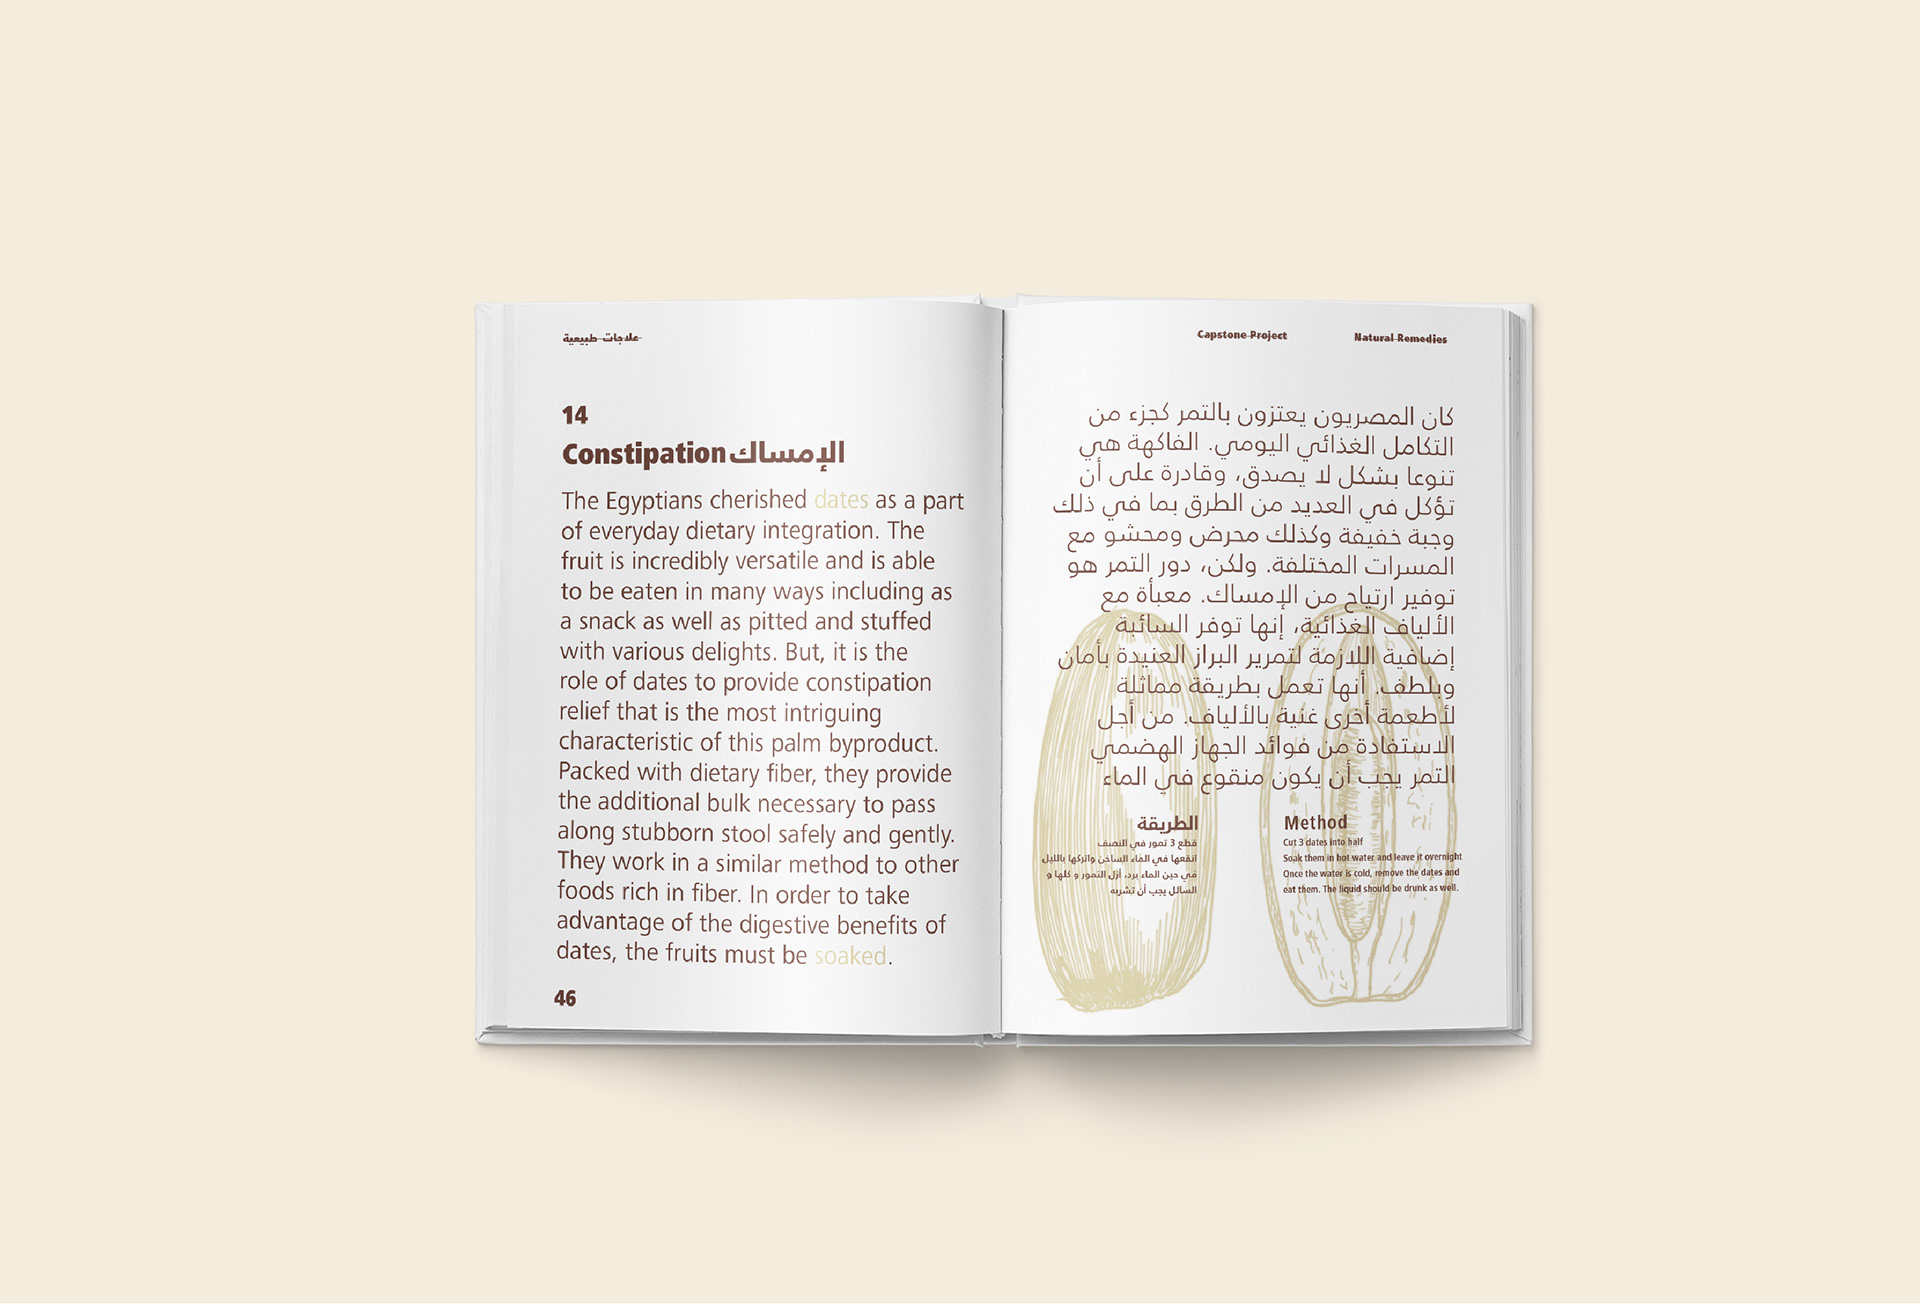 علاجات طبيعية
14
Constipation الإمساك
The Egyptians cherished dates as a part
of everyday dietary integration. The
fruit is incredibly versatile and is able
to be eaten in many ways including as
a snack as well as pitted and stuffed
with various delights. But, it is the
role of dates to provide constipation
relief that is the most intriguing
characteristic of this palm byproduct.
Packed with dietary fiber, they provide
the additional bulk necessary to pass
along stubborn stool safely and gently.
They work in a similar method to other
foods rich in fiber. In order to take
advantage of the digestive benefits of
dates, the fruits must be soaked.
46
Capstone Project
Natural Remedies
كان المصريون يعتزون بالتمر كجزء من
التكامل الغذائي اليومي. الفاكهة هي
تنوعا بشكل لا يصدق، وقادرة على أن
تؤكل في العديد من الطرق بما في ذلك
وجبة خفيفة وكذلك محرض ومحشو مع
المسرات المختلفة. ولكن، دور التمر هو
توفير ارتياح من الإمساك. معبأة مع
الألياف الغذائية، إنها توفر السائبة
إضافية اللازمة لتمرير البراز العنيدة بأمان
وبلطف. أنها تعمل بطريقة مماثلة
لأطعمة أخرى غنية بالألياف. من أجل
الاستفادة من فوائد الجهاز الهضمي
التمر يجب أن يكون منقوع في الماء
الطريقة
قطع 3 تمور في النصف
انقعها في الماء الساخن واتركها بالليل
في حين الماء برد، أزل التمور و كلها و
السائل يجب أن تشربه
Method
Cut 3 dates into half
Soak them in hot water and leave it overnight
Once the water is cold, remove the dates and
eat them. The liquid should be drunk as well.